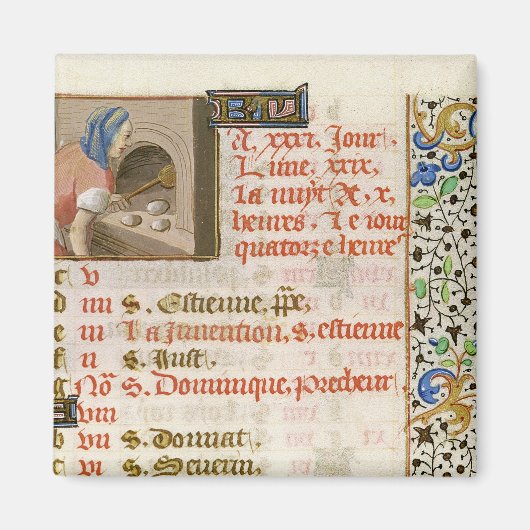 A, xxxi, Jour,
Lune, xxix,
La nuyt A, x,
heures, Le iour
quatorze heure
c v
d iiii S. Estienne, ppe,
e iii La Invention, s, estienne
f ii S. Just,
g No S. Dominique, precheur
A viii
b vii S. Donnat,
c vi S. Severin,